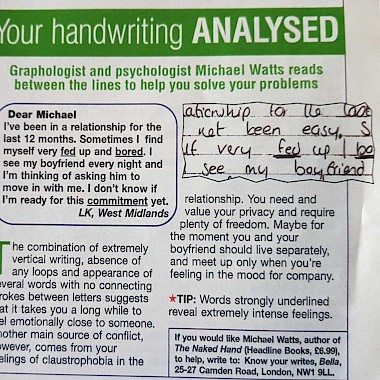 Your handwriting ANALYSED
Graphologist and psychologist Michael Watts reads
between the lines to help you solve your problems
Dear Michael
I've been in a relationship for the
last 12 months. Sometimes I find
myself very fed up and bored. I
see my boyfriend every night and
I'm thinking of asking him to
move in with me. I don't know if
I'm ready for this commitment yet.
LK, West Midlands
ationship for the
not been easy. S
lf very fed up I bo
see my boyfriend
The combination of extremely
vertical writing, absence of
any loops and appearance of
several words with no connecting
strokes between letters suggests
at it takes you a long while to
el emotionally close to someone.
nother main source of conflict,
owever, comes from your
elings of claustrophobia in the
relationship. You need and
value your privacy and require
plenty of freedom. Maybe for
the moment you and your
boyfriend should live separately,
and meet up only when you're
feeling in the mood for company.
★TIP: Words strongly underlined
reveal extremely intense feelings.
If you would like Michael Watts, author of
The Naked Hand (Headline Books, £6.99),
to help, write to: Know your writes, Bella,
25-27 Camden Road, London, NW1 9LL.